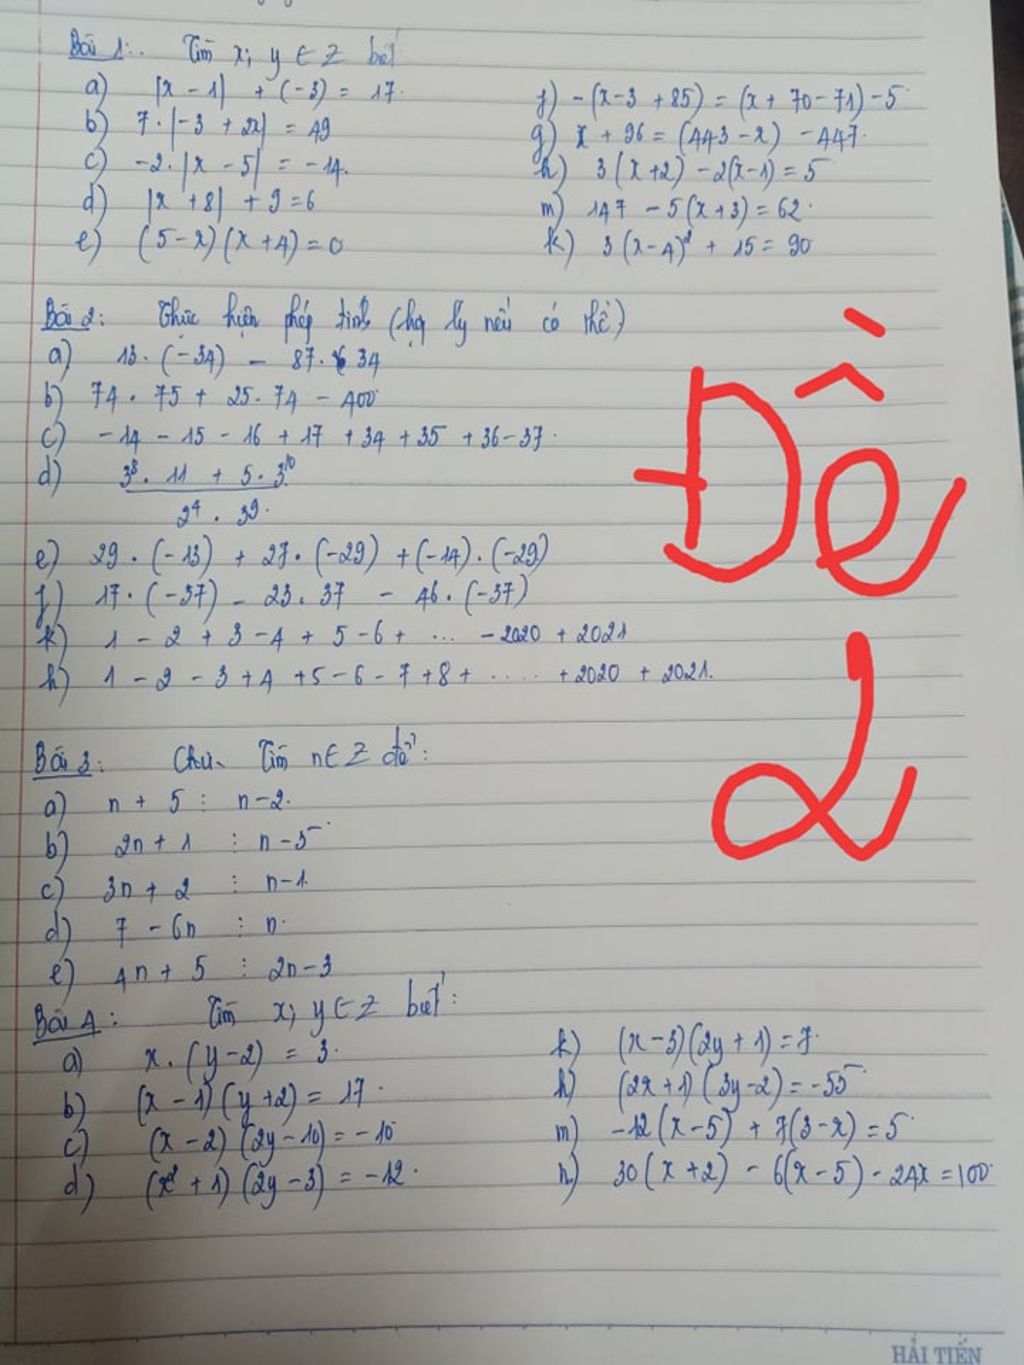 Bài 1: Tìm x; y ∈ Z biết
a) |x - 1| + (-3) = 17.
b) 7 . |-3 + 2x| = 49
c) -2 . |x - 5| = -14.
d) |x + 8| + 9 = 6
e) (5 - x)(x + 4) = 0
f) -(x - 3 + 85) = (x + 70 - 71) - 5
g) x + 96 = (443 - x) - 447.
h) 3(x + 2) - 2(x - 1) = 5
m) 147 - 5(x + 3) = 62.
k) 3(x - 4)² + 15 = 90
Bài 2: Thực hiện phép tính (hợp lý nếu có thể)
a) 13 . (-34) - 87 . 34
b) 74 . 75 + 25 . 74 - 400
c) -14 - 15 - 16 + 17 + 34 + 35 + 36 - 37.
d) 3⁸ . 11 + 5 . 3¹⁰
2⁴ . 3⁹.
e) 29 . (-13) + 27 . (-29) + (-14) . (-29)
f) 17 . (-37) - 23 . 37 - 46 . (-37)
k) 1 - 2 + 3 - 4 + 5 - 6 + ... - 2020 + 2021
h) 1 - 2 - 3 + 4 + 5 - 6 - 7 + 8 + ..... + 2020 + 2021.
Bài 3: Tìm n ∈ Z để:
a) n + 5 ⋮ n - 2.
b) 2n + 1 ⋮ n - 5
c) 3n + 2 ⋮ n - 1.
d) 7 - 6n ⋮ n.
e) 4n + 5 ⋮ 2n - 3
Bài 4: Tìm x; y ∈ Z biết:
a) x . (y - 2) = 3.
b) (x - 1)(y + 2) = 17.
c) (x - 2)(2y - 10) = -10
d) (x² + 1)(2y - 3) = -12.
k) (x - 3)(2y + 1) = 7.
h) (2x + 1)(3y - 2) = -55
m) -12(x - 5) + 7(3 - x) = 5
n) 30(x + 2) - 6(x - 5) - 24x = 100
Đề
2
HẢI TIẾN